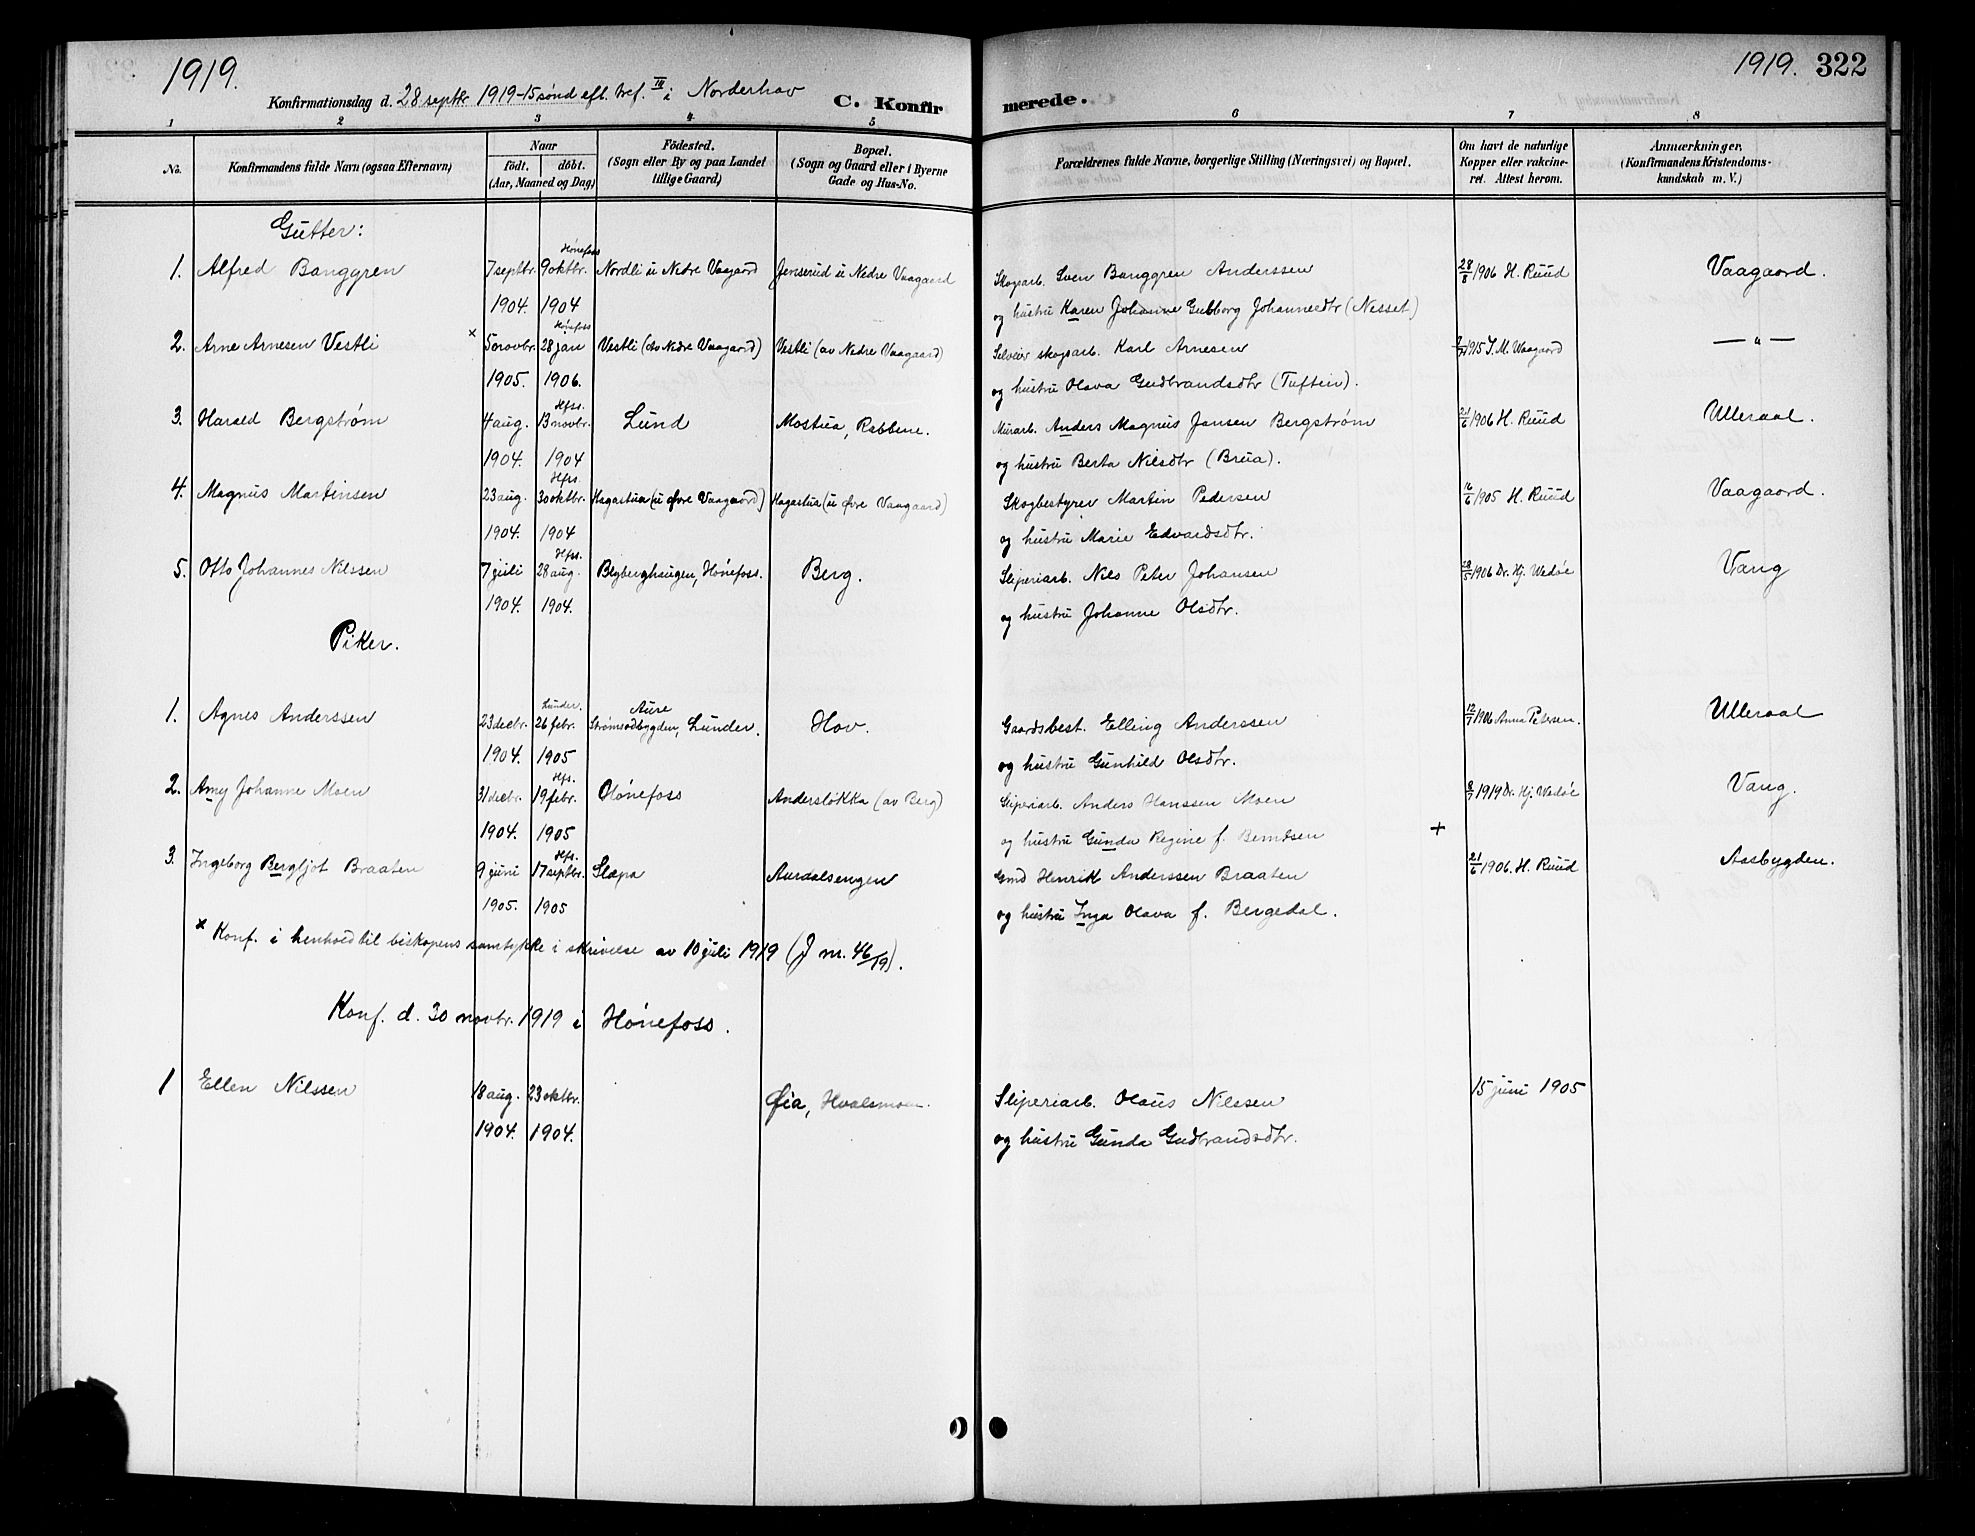 1919.
1919. 322
Konfirmationsdag d. 28 septbr 1919 - 15 sønd eft. tref. III i Norderhov C. Konfirmerede.
1 2 3 4 5 6 7 8
No. Konfirmandens fulde Navn (ogsaa Efternavn) Naar født. døbt. (Aar, Maaned og Dag) Födested. (Sogn eller By og paa Landet tillige Gaard) Bopæl. (Sogn og Gaard eller i Byerne Gade og Hus-No. Forældrenes fulde Navne, borgerlige Stilling (Næringsvei) og Bopæl. Om havt de naturlige Kopper eller vakcineret. Attest herom. Anmærkninger. (Konfirmandens Kristendomskundskab m. V.)
Gutter:
Hónefoss
1. Alfred Banggren 7 septbr. 9 oktbr. Nordli u Nedre Vaagaard Jenserud u Nedre Vaagaard Skogsarb. Sven Banggren Anderssen 28/8 1906 H. Ruud Vaagaard.
1904. 1904 og hustru Karen Johanne Gubborg Johannesdtr (Nesset)
Hónefoss
2. Arne Arnesen Vestli × 5 novbr. 28 jan Vestli (av Nedre Vaagaard) Vestli (av Nedre Vaagaard) Selveier skogsarb. Karl Arnesen 1915 J. M. Waagaard — " —
1905. 1906. og hustru Olava Gudbrandsdtr (Tuftin).
Hfss.
3. Harald Bergstrøm 4 aug. 13 novbr. Lund Mostua, Rabbene. Murarb. Anders Magnus Jansen Bergstrøm 21/6 1906 H. Ruud Ulleraal.
1904. 1904 og hustru Berta Nilsdtr (Brua).
Hfss.
4. Magnus Martinsen 23 aug. 30 oktbr. Hagastua (u Øvre Vaagaard) Hagastua (u Øvre Vaagaard) Skogbestyrer Martin Pedersen 16/6 1905 H. Ruud Vaagaard.
1904. 1904 og hustru Marie Edvardsdtr.
Hfss.
5. Otto Johannes Nilssen 7 juli 28 aug. Blyberghaugen, Hónefoss. Berg. Sliperiarb. Nils Peter Johansen 28/5 1906 Dr. Hj. Wedøe Vang
1904. 1904. og hustru Johanne Olsdtr.
Piker.
Lunder. Aure
1. Agnes Anderssen 23 decbr. 26 febr. Strømsodbygden, Lunder. Hov. Gaardsbest. Elling Anderssen 12/7 1906 Anna Petersen. Ulleraal
1904. 1905 og hustru Gunhild Olsdtr.
Hfs.
2. Amy Johanne Moen 31 decbr. 19 febr. Hónefoss Andersløkka (av Berg) Sliperiarb. Anders Hanssen Moen 8/7 1919 Dr. Hj. Wedøe Vang.
1904. 1905 og hustru Gunda Regine f. Berntsen +
Hfs.
3. Ingeborg Bergljot Braaten 9 juni 17 septbr. Slæpa Aurdalsengen Gmd Henrik Anderssen Braaten 21/6 1906. H. Ruud Aasbygden.
1905. 1905 og hustru Inga Olava f. Bergedal.
× Konf. i henhold til biskopens samtykke i skrivelse av 10 juli 1919 (J nr. 46/19).
Konf. d. 30 novbr. 1919 i Hónefoss.
1 Ellen Nilssen 18 aug. 23 oktbr. Øia, Hvalsmoen. Sliperiarb. Olaus Nilssen 15 juni 1905
1904. 1904. og hustru Gunda Gudbrandsdtr.